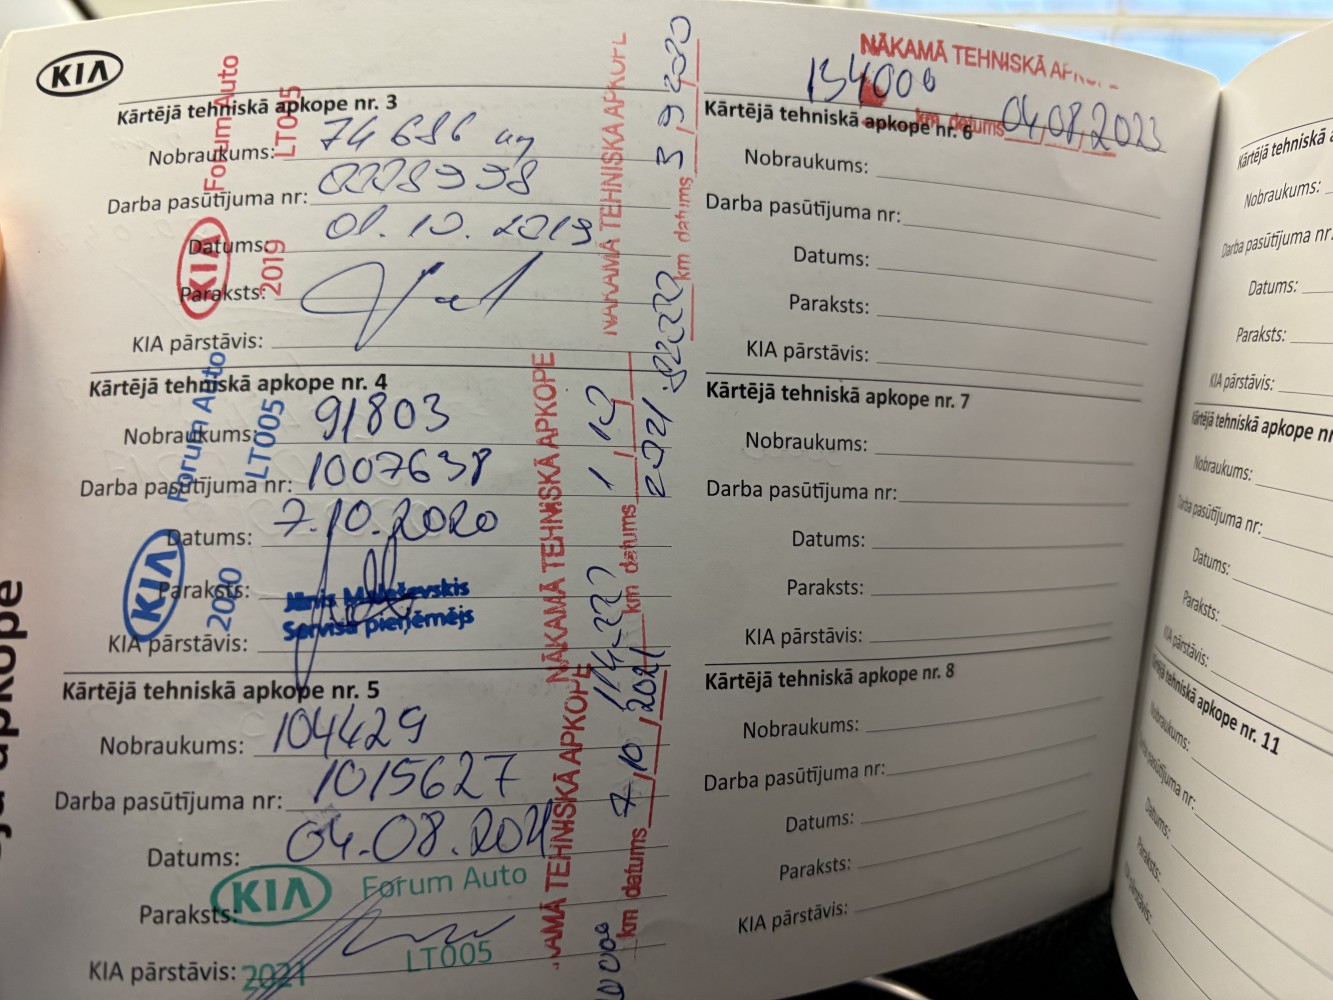 KIA
Kārtējā tehniskā apkope nr. 3
Nobraukums: 74 686
Darba pasūtījuma nr:
Datums: 01.10.2019
Paraksts:
KIA pārstāvis:
KIA
Forum Auto
LT005
2019
NĀKAMĀ TEHNISKĀ
km datums
Kārtējā tehniskā apkope nr. 4
Nobraukums: 91803
Darba pasūtījuma nr: 1007638
Datums: 7.10.2020
Paraksts:
KIA pārstāvis:
Jānis
Servisa pieņēmējs
KIA
Forum Auto
LT005
2020
NĀKAMĀ TEHNISKĀ APKOPE
km datums
2021
Kārtējā tehniskā apkope nr. 5
Nobraukums: 104429
Darba pasūtījuma nr: 1015627
Datums: 04.08.2021
Paraksts:
KIA pārstāvis:
KIA Forum Auto
2021 LT005
TEHNISKĀ APKOPE
km datums 7,10,2021
NĀKAMĀ TEHNISKĀ
134000
km datums 04,08,2023
Kārtējā tehniskā apkope nr. 6
Nobraukums:
Darba pasūtījuma nr:
Datums:
Paraksts:
KIA pārstāvis:
Kārtējā tehniskā apkope nr. 7
Nobraukums:
Darba pasūtījuma nr:
Datums:
Paraksts:
KIA pārstāvis:
Kārtējā tehniskā apkope nr. 8
Nobraukums:
Darba pasūtījuma nr:
Datums:
Paraksts:
KIA pārstāvis:
Kārtējā tehniskā
Nobraukums:
Darba pasūtījuma nr:
Datums:
Paraksts:
KIA pārstāvis:
Kārtējā tehniskā apkope
Nobraukums:
Darba pasūtījuma nr:
Datums:
Paraksts:
KIA pārstāvis:
Kārtējā tehniskā apkope nr. 11
Nobraukums:
Darba pasūtījuma nr:
Datums:
Paraksts:
KIA pārstāvis:
apkope